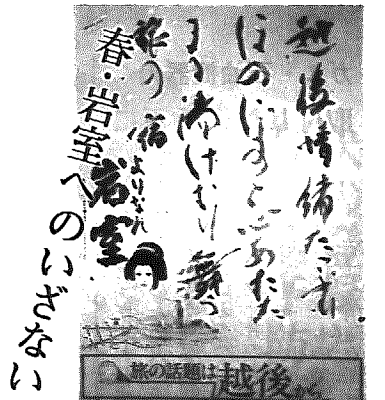 越後情緒たっぷり
ほのぼのと心あたた
まる湯けむり舞う
旅の宿
岩室
春・岩室へのいざない
旅の話題は越後から